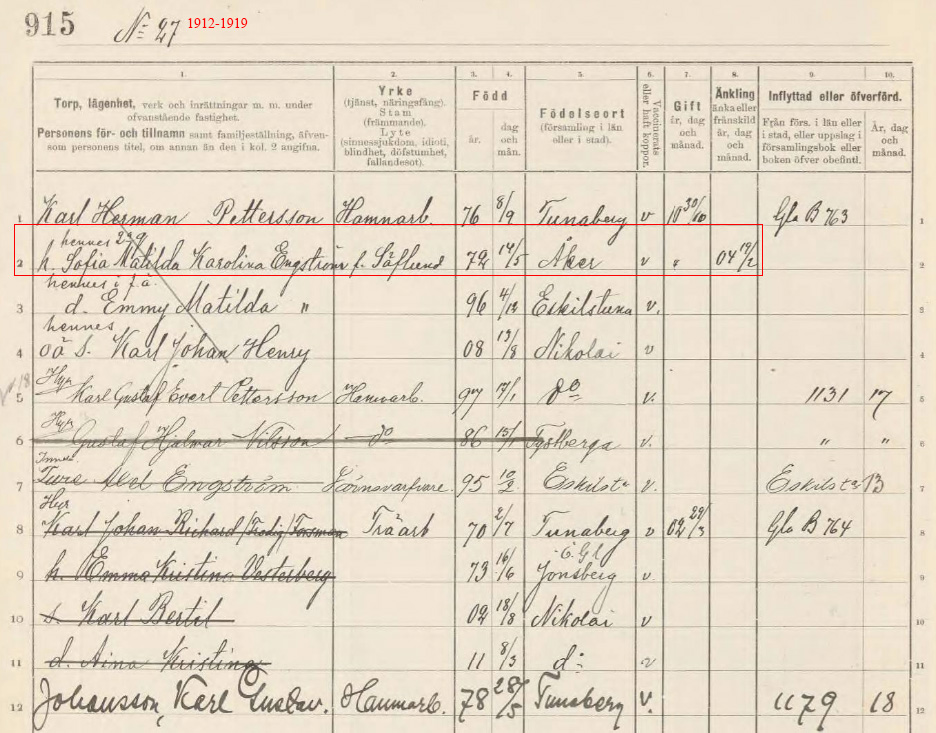 915 № 27 1912-1919
1. 2. 3. 4. 5. 6. 7. 8. 9. 10.
Torp, lägenhet, verk och inrättningar m. m. under ofvanstående fastighet.
Personens för- och tillnamn samt familjeställning, äfvensom personens titel, om annan än den i kol. 2 angifna.
Yrke
(tjänst, näringsfång).
Stam
(främmande).
Lyte
(sinnessjukdom, idioti, blindhet, döfstumhet, fallandesot).
Född
år.
dag och mån.
Födelseort
(församling i län eller i stad).
Vaccinerats eller haft koppor.
Gift
år, dag och månad.
Änkling
änka eller frånskild år, dag och månad.
Inflyttad eller öfverförd.
Från förs. i län eller i stad, eller uppslag i församlingsbok eller boken öfver obefintl.
År, dag och månad.
1 Karl Herman Pettersson Hamnarb. 76 8/9 Tunaberg v 10 30/10 Gla B 763 1
hennes
2 h. Sofia Matilda Karolina Engström f. Säflund 72 14/5 Åker v " 04 17/2 2
hennes i f. ä.
3 d. Emmy Matilda " 96 4/12 Eskilstuna v. 3
hennes
4 oä s. Karl Johan Henry 08 13/8 Nikolai v 4
Hyr
5 Karl Gustaf Evert Pettersson Hamnarb. 97 17/1 do v. 1131 17 5
Hyr
6 Gustaf Hjalmar Nilsson do 86 13/1 Tystberga v. " " 6
7 Ture Axel Engström 95 10/2 Eskilsta v. Eskilsta 13 7
Hyr
8 Karl Johan Richard /Frodig/ Forsman Träarb 70 2/7 Tunaberg v 02 29/3 Gla B 764 8
Ö. Gl.
9 h. Emma Kristina Vesterberg 73 16/6 Jonsberg v. 9
10 s. Karl Bertil 02 18/8 Nikolai v 10
11 d. Aina Kristina 11 8/3 d:o v 11
12 Johansson, Karl Gustav. Hamnarb. 78 28/5 Tunaberg v. 1179 18 12